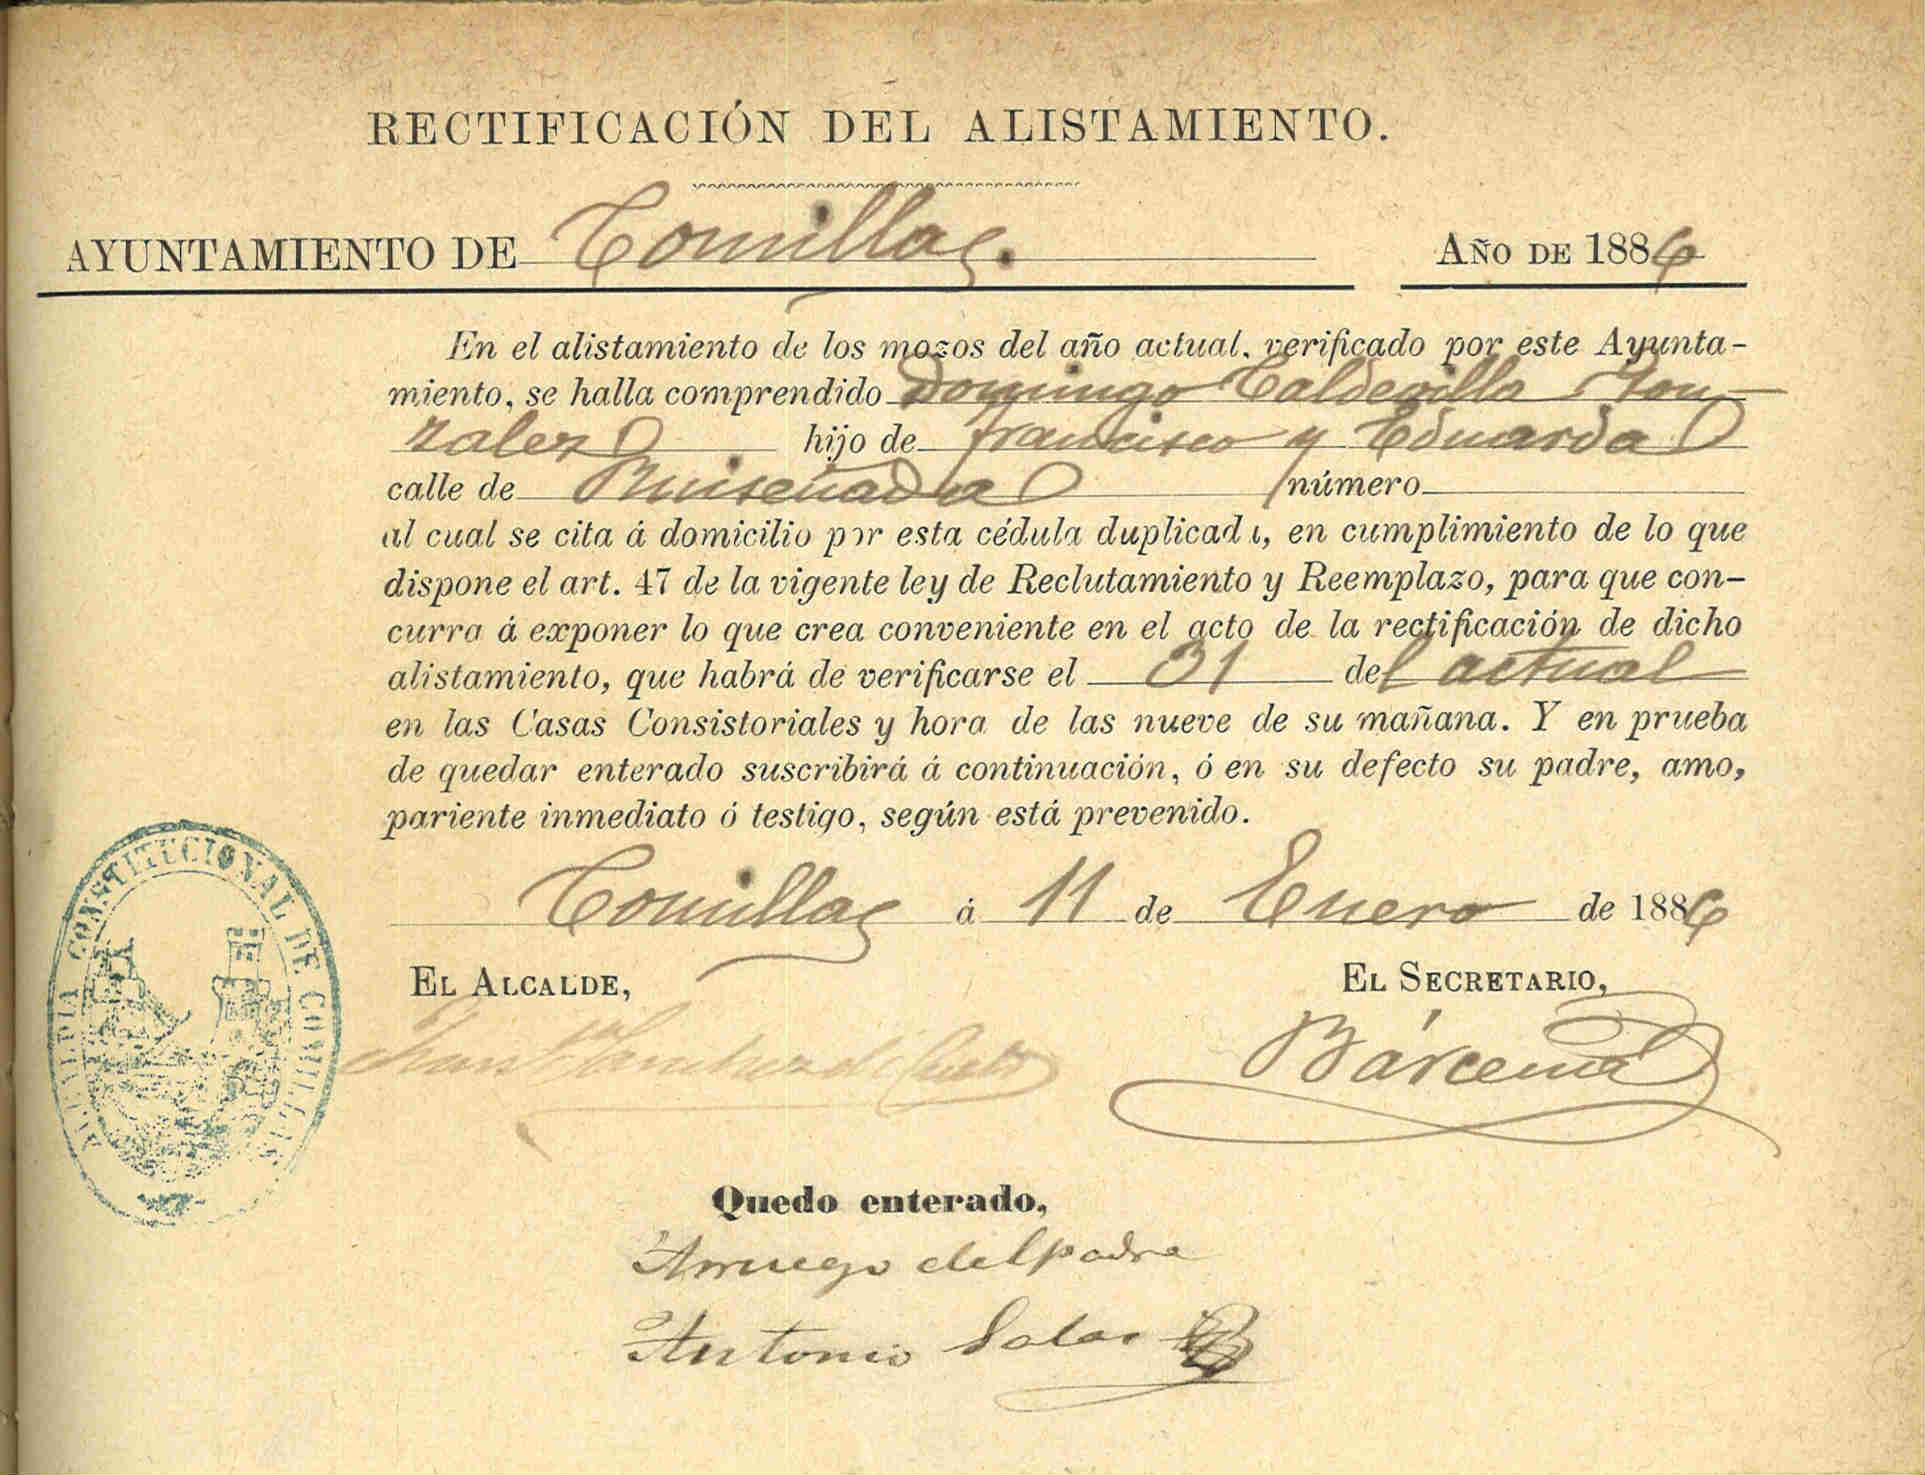 RECTIFICACIÓN DEL ALISTAMIENTO.
AYUNTAMIENTO DE Comillas. AÑO DE 1886
En el alistamiento de los mozos del año actual, verificado por este Ayunta-
miento, se halla comprendido Domingo Caldevilla Gon
zalez hijo de Francisco y Eduarda
calle de Ruiseñada número
al cual se cita á domicilio por esta cédula duplicada, en cumplimiento de lo que
dispone el art. 47 de la vigente ley de Reclutamiento y Reemplazo, para que con-
curra á exponer lo que crea conveniente en el acto de la rectificación de dicho
alistamiento, que habrá de verificarse el 31 del actual
en las Casas Consistoriales y hora de las nueve de su mañana. Y en prueba
de quedar enterado suscribirá á continuación, ó en su defecto su padre, amo,
pariente inmediato ó testigo, según está prevenido.
Comillas á 11 de Enero de 1886
EL ALCALDE, EL SECRETARIO,
Bárcena
ALCALDIA CONSTITUCIONAL DE COMILLAS
Quedo enterado,
Arruego del padre
Antonio Salas